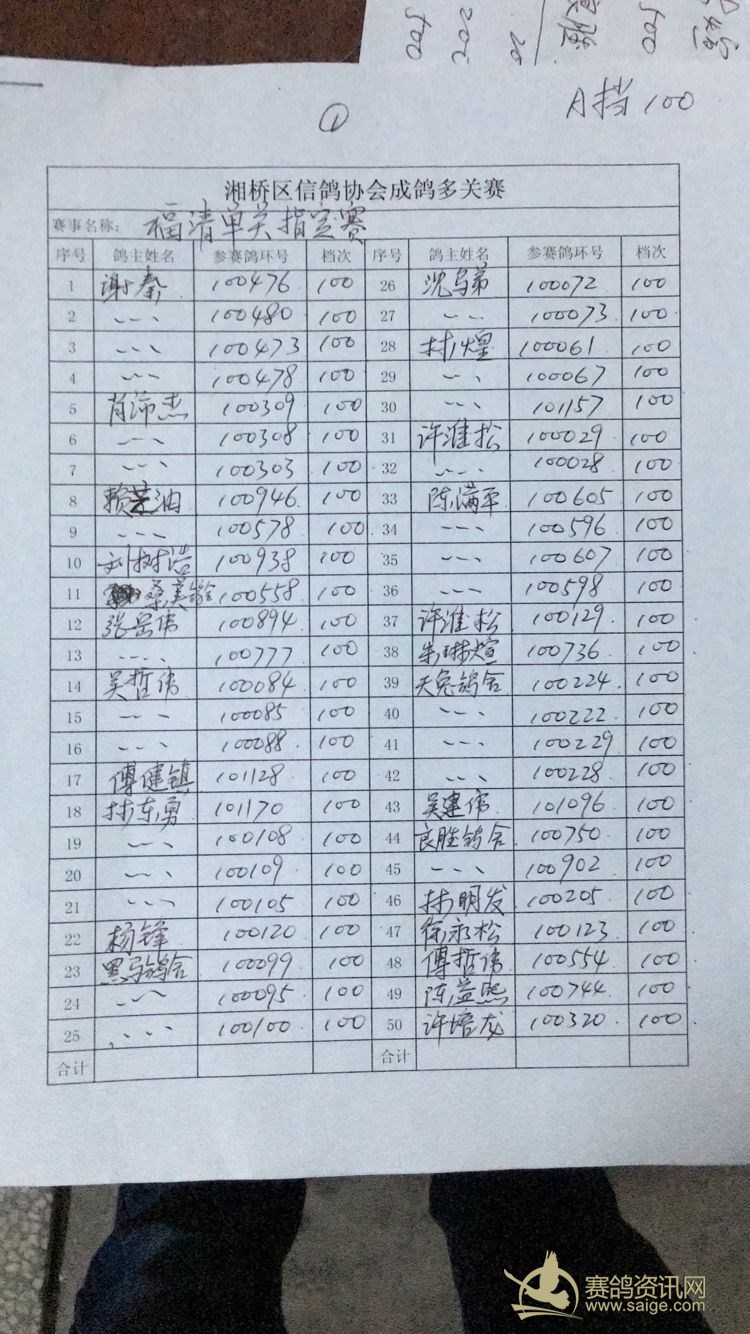 20
200
500
500
①
A挡 100
湘桥区信鸽协会成鸽多关赛
赛事名称: 福清单关指定赛
序号 鸽主姓名 参赛鸽环号 档次 序号 鸽主姓名 参赛鸽环号 档次
1 谢秦 100476 100 26 沈乌弟 100072 100
2 、、、 100480 100 27 、、 100073 100
3 、、、 100473 100 28 林煌 100061 100
4 、、、 100478 100 29 、、、 100067 100
5 肖沛杰 100309 100 30 、、、 101157 100
6 、、、 100308 100 31 许淮松 100029 100
7 、、、 100303 100 32 、、、 100028 100
8 赖 油 100946 100 33 陈满平 100605 100
9 、、、 100578 100 34 、、、 100596 100
10 刘树浩 100938 100 35 、、、 100607 100
11 桑美 100558 100 36 、、、 100598 100
12 张岳伟 100894 100 37 许淮松 100129 100
13 、、、 100777 100 38 朱琳煊 100736 100
14 吴哲伟 100084 100 39 天兔鸽舍 100224 100
15 、、、 100085 100 40 、、、 100222 100
16 、、、 100088 100 41 、、、 100229 100
17 傅健镇 101128 100 42 、、、 100228 100
18 林东勇 101170 100 43 吴建伟 101096 100
19 、、、 100108 100 44 良胜鸽舍 100750 100
20 、、、 100109 100 45 、、、 100902 100
21 、、、 100105 100 46 林明发 100205 100
22 杨锋 100120 100 47 徐永松 100123 100
23 黑马鸽舍 100099 100 48 傅哲伟 100554 100
24 、、、 100095 100 49 陈益熙 100744 100
25 、、、 100100 100 50 许培龙 100320 100
合计 合计
赛鸽资讯网
www.saige.com